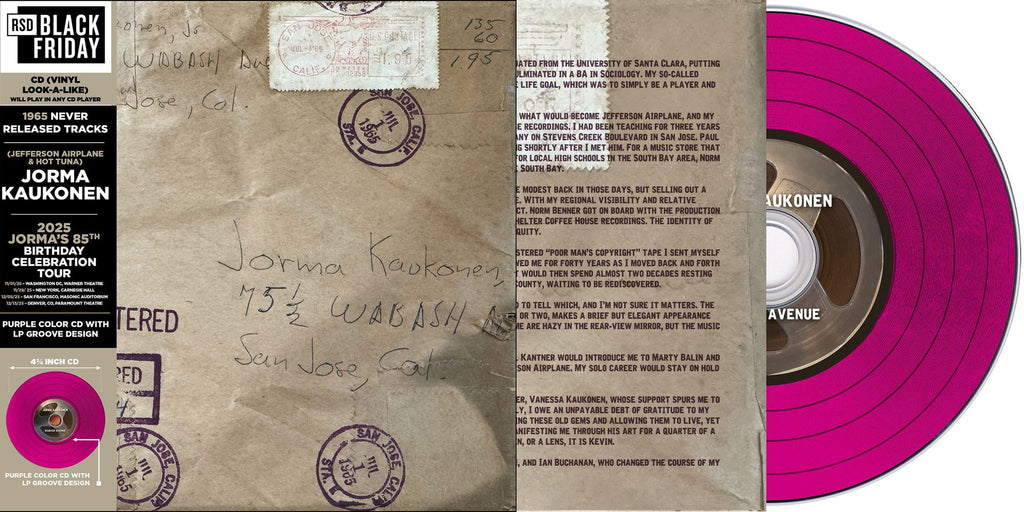 RSD BLACK
FRIDAY
CD (VINYL
LOOK-A-LIKE)
WILL PLAY IN ANY CD PLAYER
1965 NEVER
RELEASED TRACKS
(JEFFERSON AIRPLANE
& HOT TUNA)
JORMA
KAUKONEN
2025
JORMA'S 85TH
BIRTHDAY
CELEBRATION
TOUR
11/01/25 - WASHINGTON DC, WARNER THEATRE
11/29/25 - NEW YORK, CARNEGIE HALL
12/05/25 - SAN FRANCISCO, MASONIC AUDITORIUM
12/13/25 - DENVER, CO, PARAMOUNT THEATRE
PURPLE COLOR CD WITH
LP GROOVE DESIGN
4¾ INCH CD
PURPLE COLOR CD WITH
LP GROOVE DESIGN
WABASH Ave
Jose, Cal.
135
60
1.95
SAN JOSE, CALIF.
JUL
1
1965
STA. B
Jorma Kaukonen,
75 ½ WABASH
San Jose, Cal.
TERED
SAN JOSE, CALIF.
JUL
1
1965
SAN JOSE, CALIF.
JUL
1
1965
STA. B
UATED FROM THE UNIVERSITY OF SANTA CLARA, PUTTING
ULMINATED IN A BA IN SOCIOLOGY. MY SO-CALLED
LIFE GOAL, WHICH WAS TO SIMPLY BE A PLAYER AND
WHAT WOULD BECOME JEFFERSON AIRPLANE, AND MY
E RECORDINGS. I HAD BEEN TEACHING FOR THREE YEARS
ANY ON STEVENS CREEK BOULEVARD IN SAN JOSE. PAUL
G SHORTLY AFTER I MET HIM. FOR A MUSIC STORE THAT
FOR LOCAL HIGH SCHOOLS IN THE SOUTH BAY AREA, NORM
SOUTH BAY.
E MODEST BACK IN THOSE DAYS, BUT SELLING OUT A
E. WITH MY REGIONAL VISIBILITY AND RELATIVE
CT. NORM BENNER GOT ON BOARD WITH THE PRODUCTION
HELTER COFFEE HOUSE RECORDINGS. THE IDENTITY OF
QUITY.
STERED "POOR MAN'S COPYRIGHT" TAPE I SENT MYSELF
VED ME FOR FORTY YEARS AS I MOVED BACK AND FORTH
Y WOULD THEN SPEND ALMOST TWO DECADES RESTING
OUNTY, WAITING TO BE REDISCOVERED.
D TO TELL WHICH, AND I'M NOT SURE IT MATTERS. THE
OR TWO, MAKES A BRIEF BUT ELEGANT APPEARANCE
ME ARE HAZY IN THE REAR-VIEW MIRROR, BUT THE MUSIC
L KANTNER WOULD INTRODUCE ME TO MARTY BALIN AND
SON AIRPLANE. MY SOLO CAREER WOULD STAY ON HOLD
ER, VANESSA KAUKONEN, WHOSE SUPPORT SPURS ME TO
LY, I OWE AN UNPAYABLE DEBT OF GRATITUDE TO MY
ING THESE OLD GEMS AND ALLOWING THEM TO LIVE, YET
ANIFESTING ME THROUGH HIS ART FOR A QUARTER OF A
N, OR A LENS, IT IS KEVIN.
, AND IAN BUCHANAN, WHO CHANGED THE COURSE OF MY
AUKONEN
AVENUE